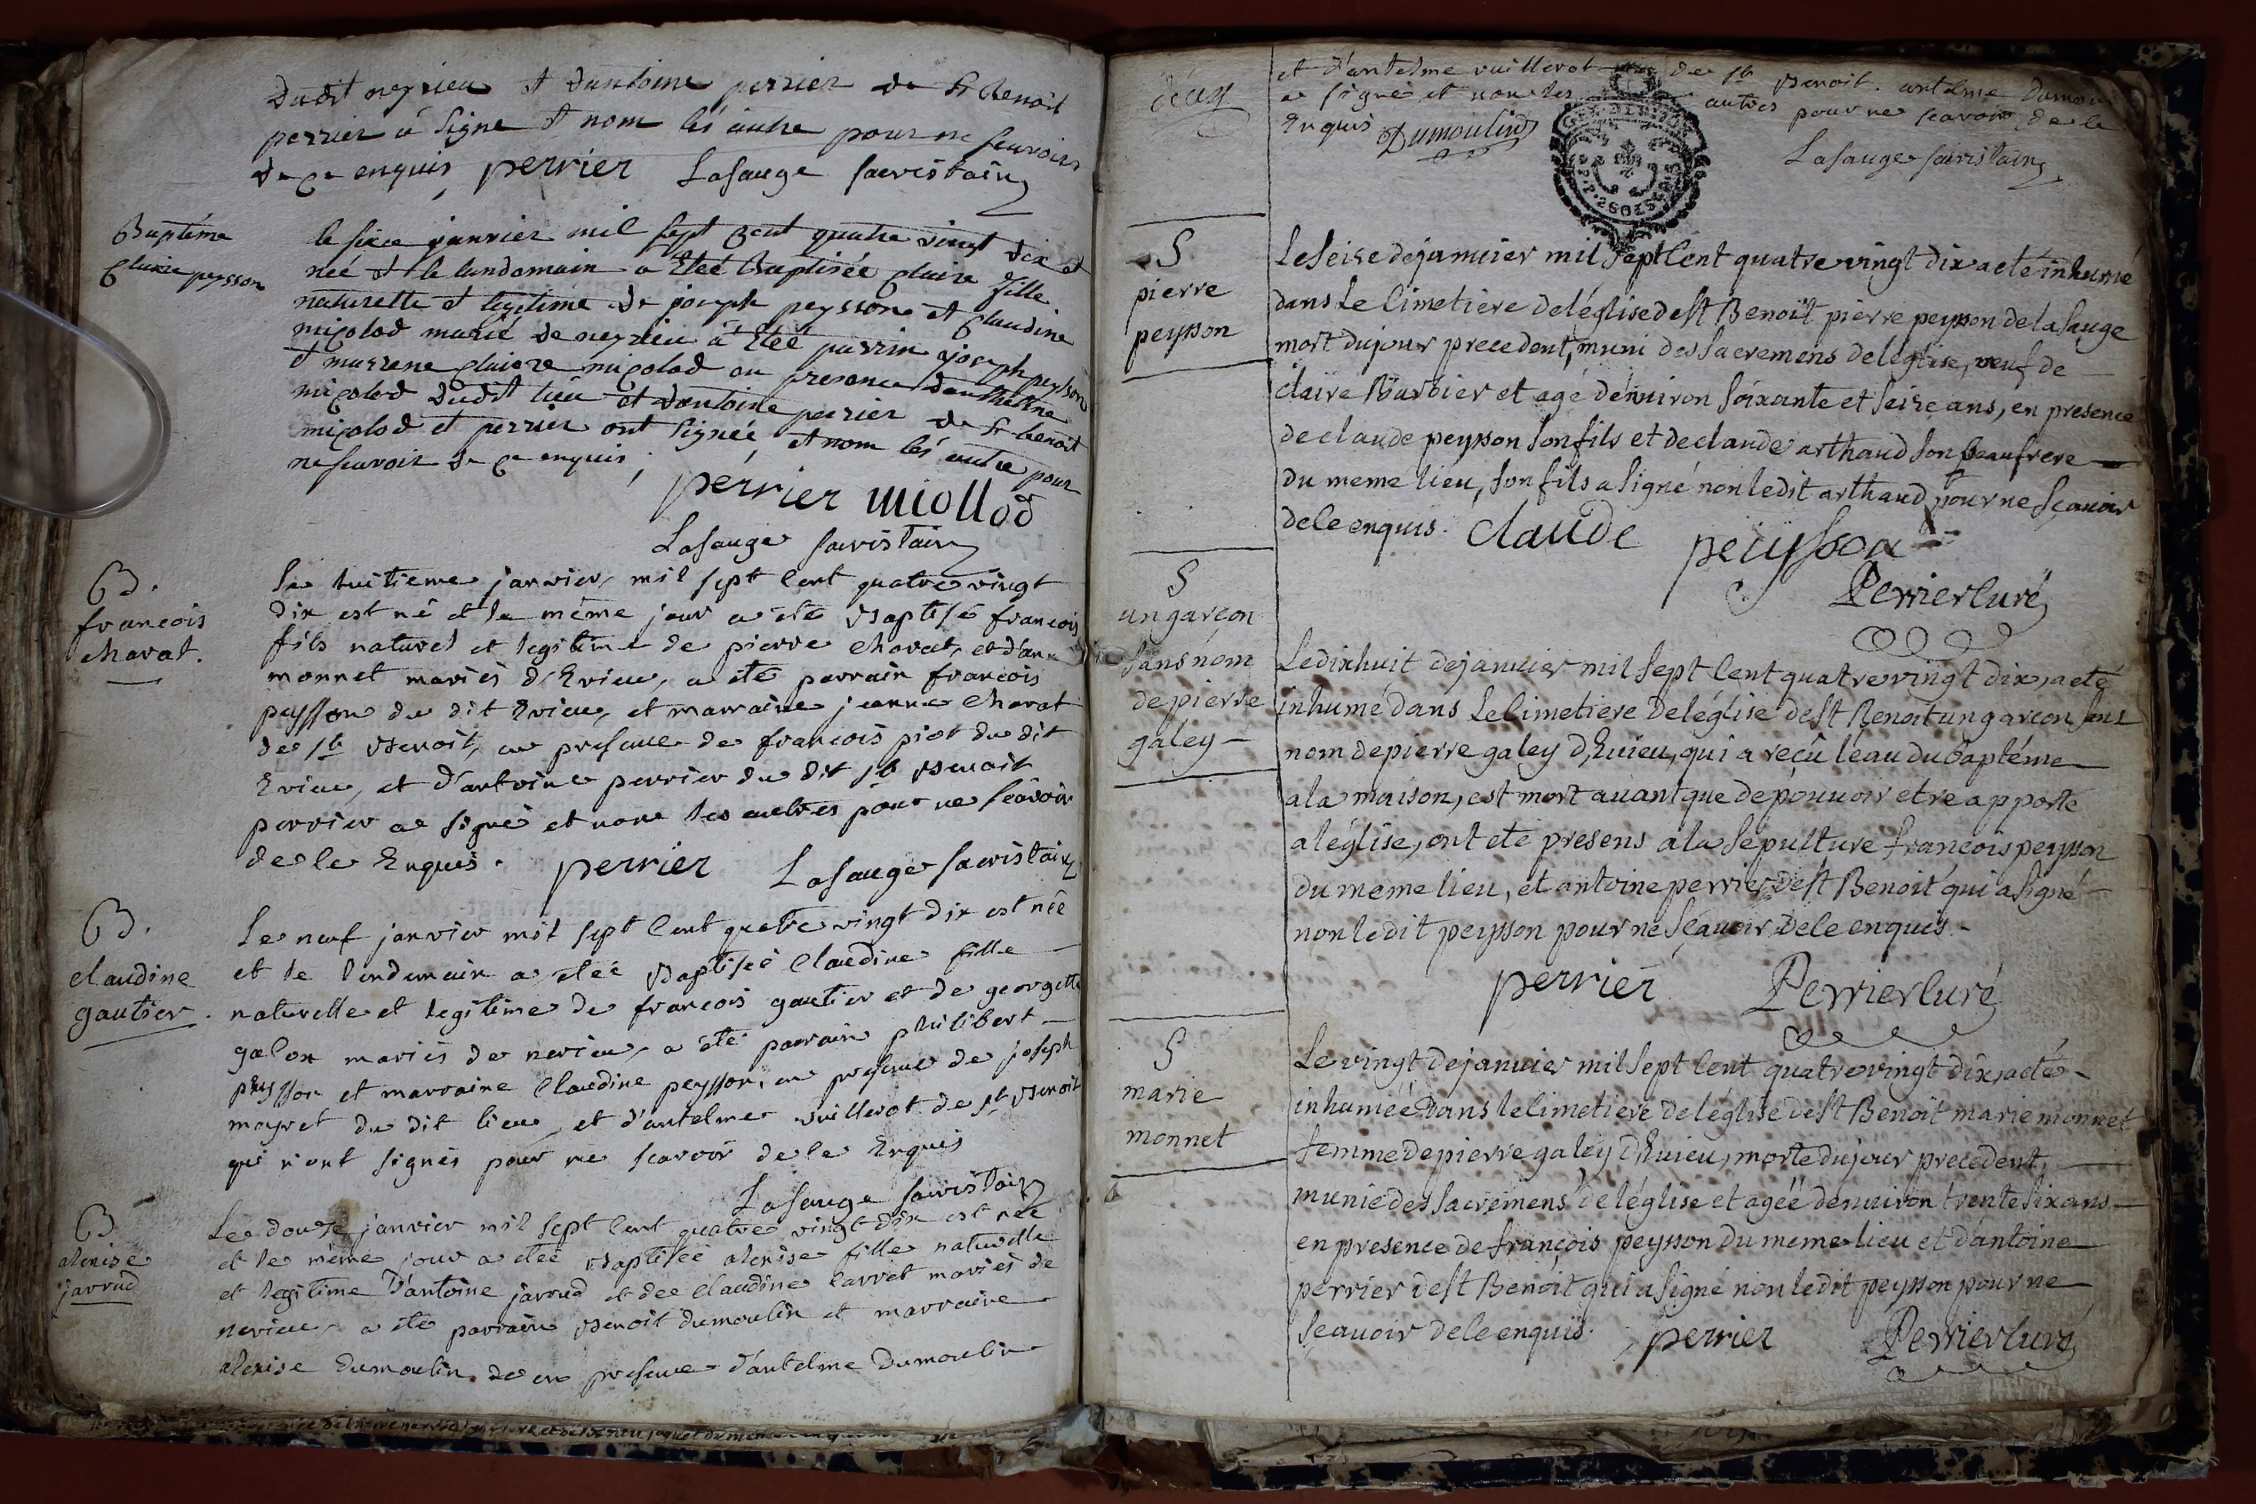 dudit neyrieu et dantoine perrier de St benoit
perrier a signe et nom les autre pour ne scavoir
de ce enquis perrier Lasauge sacristain
Baptéme
Claire peysson
le sixe janvier mil sept cent quatre vingt dix et
neé et le landomain a Eteé Baptisée claire fille
naturelle et legitime de joseph peysson et Claudine
micolod marié de neyrieu a Eteé parrin joseph peysson
et marrene claire micolod en presance danthelme
micolod dudit lieu et dantoine perrier de St benoit
micolod et perrier ont signée, et nom les autre pour
ne scavoir de ce enquis
perrier miollod
Lasauge sacristain
B.
francois
chavat.
Le huitieme janvier mil sept cent quatre vingt
dix est né et le méme jour a ete Baptisé francois
fils naturel et legitime de pierre chavat, et d'anne
monnet mariés d'Evieu, a eté parrain francois
peysson du dit Evieu, et marraine jeanne chavat
de st Benoit, en presence de francois piot du dit
Evieu, et d'antoine perrier du dit st Benoit
perrier a signé et non les autres pour ne scavoir
de le Enquis. perrier Lasauge sacristain
B.
claudine
gautier.
Le neuf janvier mil sept cent quatre vingt dix est née
et le lendemain a eteé Baptiseé Claudine fille
naturelle et legitime de francois gautier et de georgette
galon mariés de nerieu, a été parrain philibert
peysson et marraine Claudine peysson, en presence de joseph
mayret du dit lieu, et d'antelme vuillerot de st Benoit
qui n'ont signés pour ne scavoir de le Enquis
Lasauge sacristain
B
alexise
jarrud
Le douze janvier mil sept cent quatre vingt dix est née
et le méme jour a eteé Baptiseé alexise fille naturelle
et legitime d'antoine jarrud et de Claudine Carret mariés de
nerieu, a été parrain Benoit dumoulin et marraine
alexise dumoulin de en presence d'antelme Dumoulin
et d'antelme vuillerot de st Benoit. antelme Dumou
a signé et non les autres pour ne scavoir de le
Enquis Dumoulin
Lasauge sacristain
S
pierre
peysson
Le seise de janvier mil sept Cent quatre vingt dix a eté inhumé
dans Le Cimetiere de léglise de St Benoit pierre peysson de la sauge
mort du jour precedent, muni des sacremens de leglise, veuf de
claire Barbier et agé dénviron soixante et seise ans, en presence
de claude peysson son fils et de claude arthaud son beaufrere
du meme lieu, son fils a signé non ledit arthaud pour ne sçavoir
de le enquis. Claude peyssoa
Perrier Curé
S
un garçon
sans nom
de pierre
galey
Le dixhuit de janvier mil sept Cent quatre vingt dix, a eté
inhumé dans Le Cimetiere de léglise de St Benoit un garcon sans
nom de pierre galey d'Evieu, qui a reçu léau du baptéme
a la maison, est mort avant que de pouvoir etre apporté
a léglise, ont eté presens a la sepulture françois peysson
du meme lieu, et antoine perrier de St Benoit qui a signé
non ledit peysson pour ne sçavoir de le enquis.
perrier Perrier Curé
S
marie
monnet
Le vingt de janvier mil sept Cent quatre vingt dix, a eté
inhumée dans le Cimetiere de léglise de St Benoit marie monnet
femme de pierre galey d'Evieu, morte du jour precedent,
munie des sacremens de léglise et agée denviron trente six ans
en presence de françois peysson du meme lieu et dántoine
perrier de St Benoit qui a signé non ledit peysson pour ne
scavoir de le enquis. perrier Perrier Curé